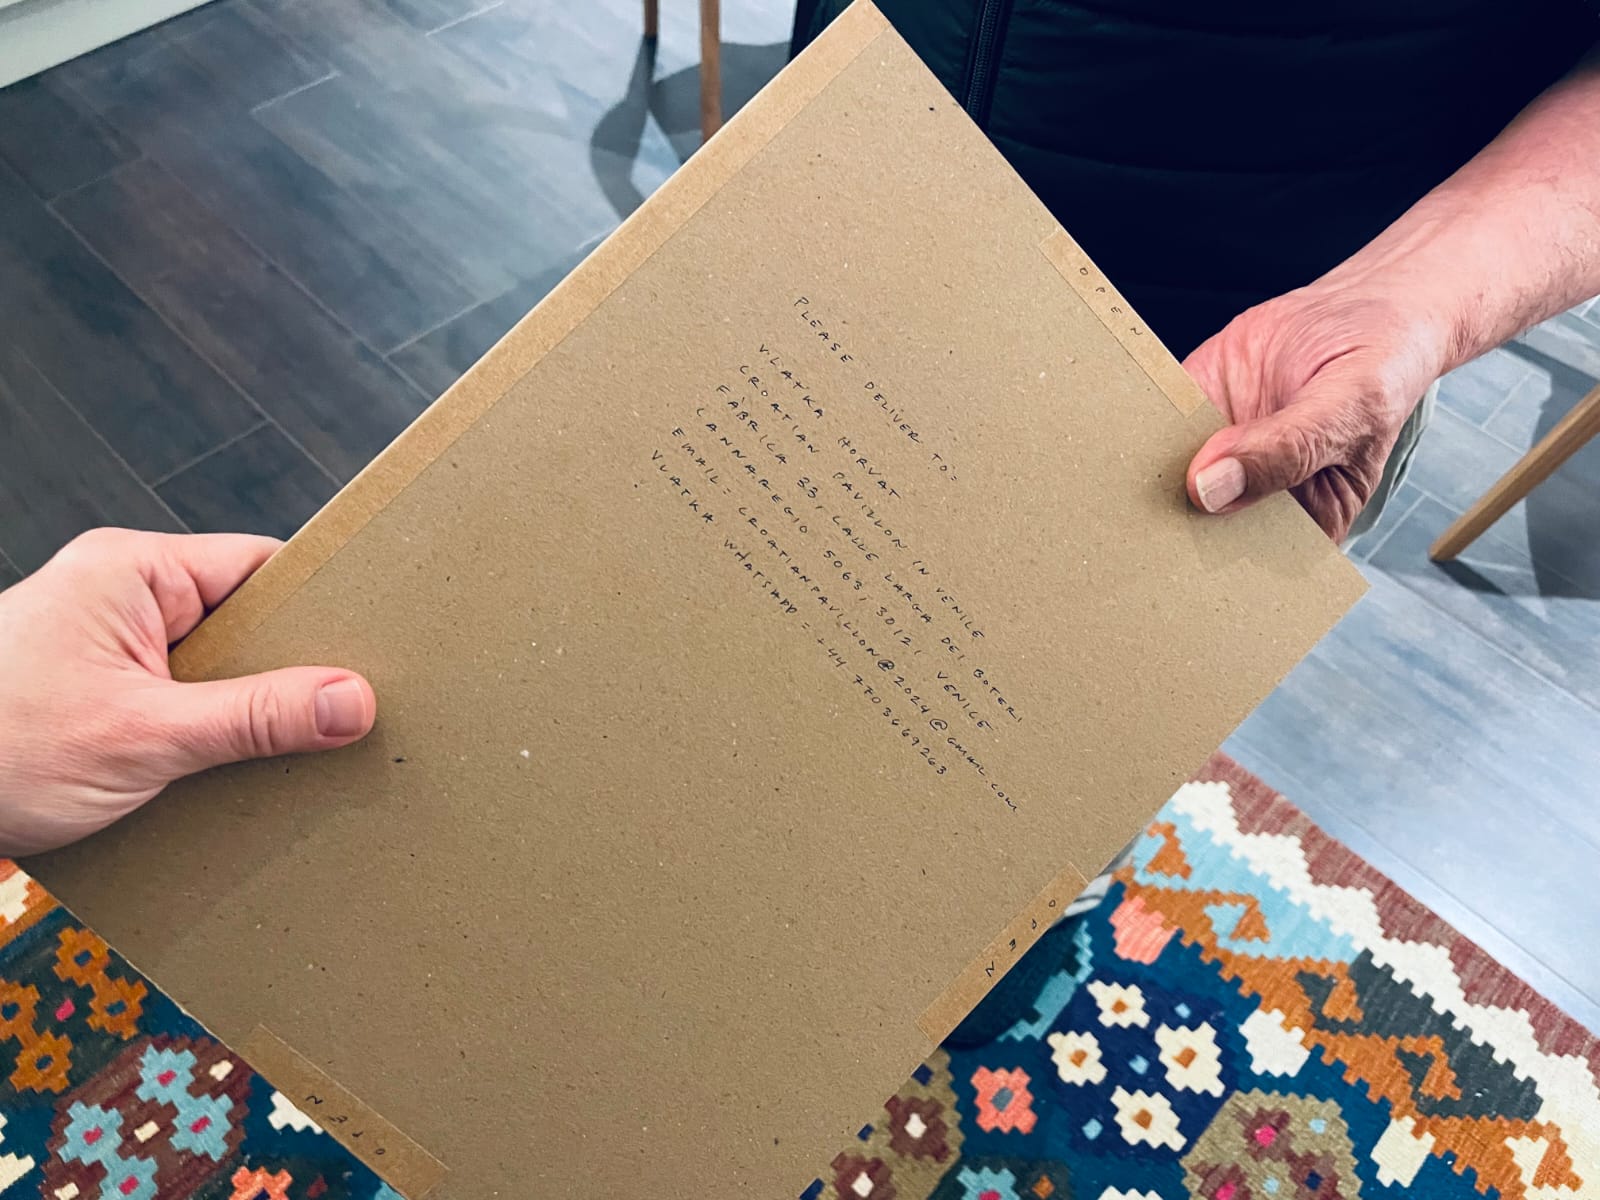 PLEASE DELIVER TO:
VLATKA HORVAT
CROATIAN PAVILION IN VENICE
FÀBRICA 33, CALLE LARGA DEI BOTERI
CANNAREGIO 5063, 30121 VENICE
EMAIL: CROATIANPAVILION@2024@GMAIL.COM
VLATKA WHATSAPP: +44 7703669263
OPEN
OPEN
OPEN